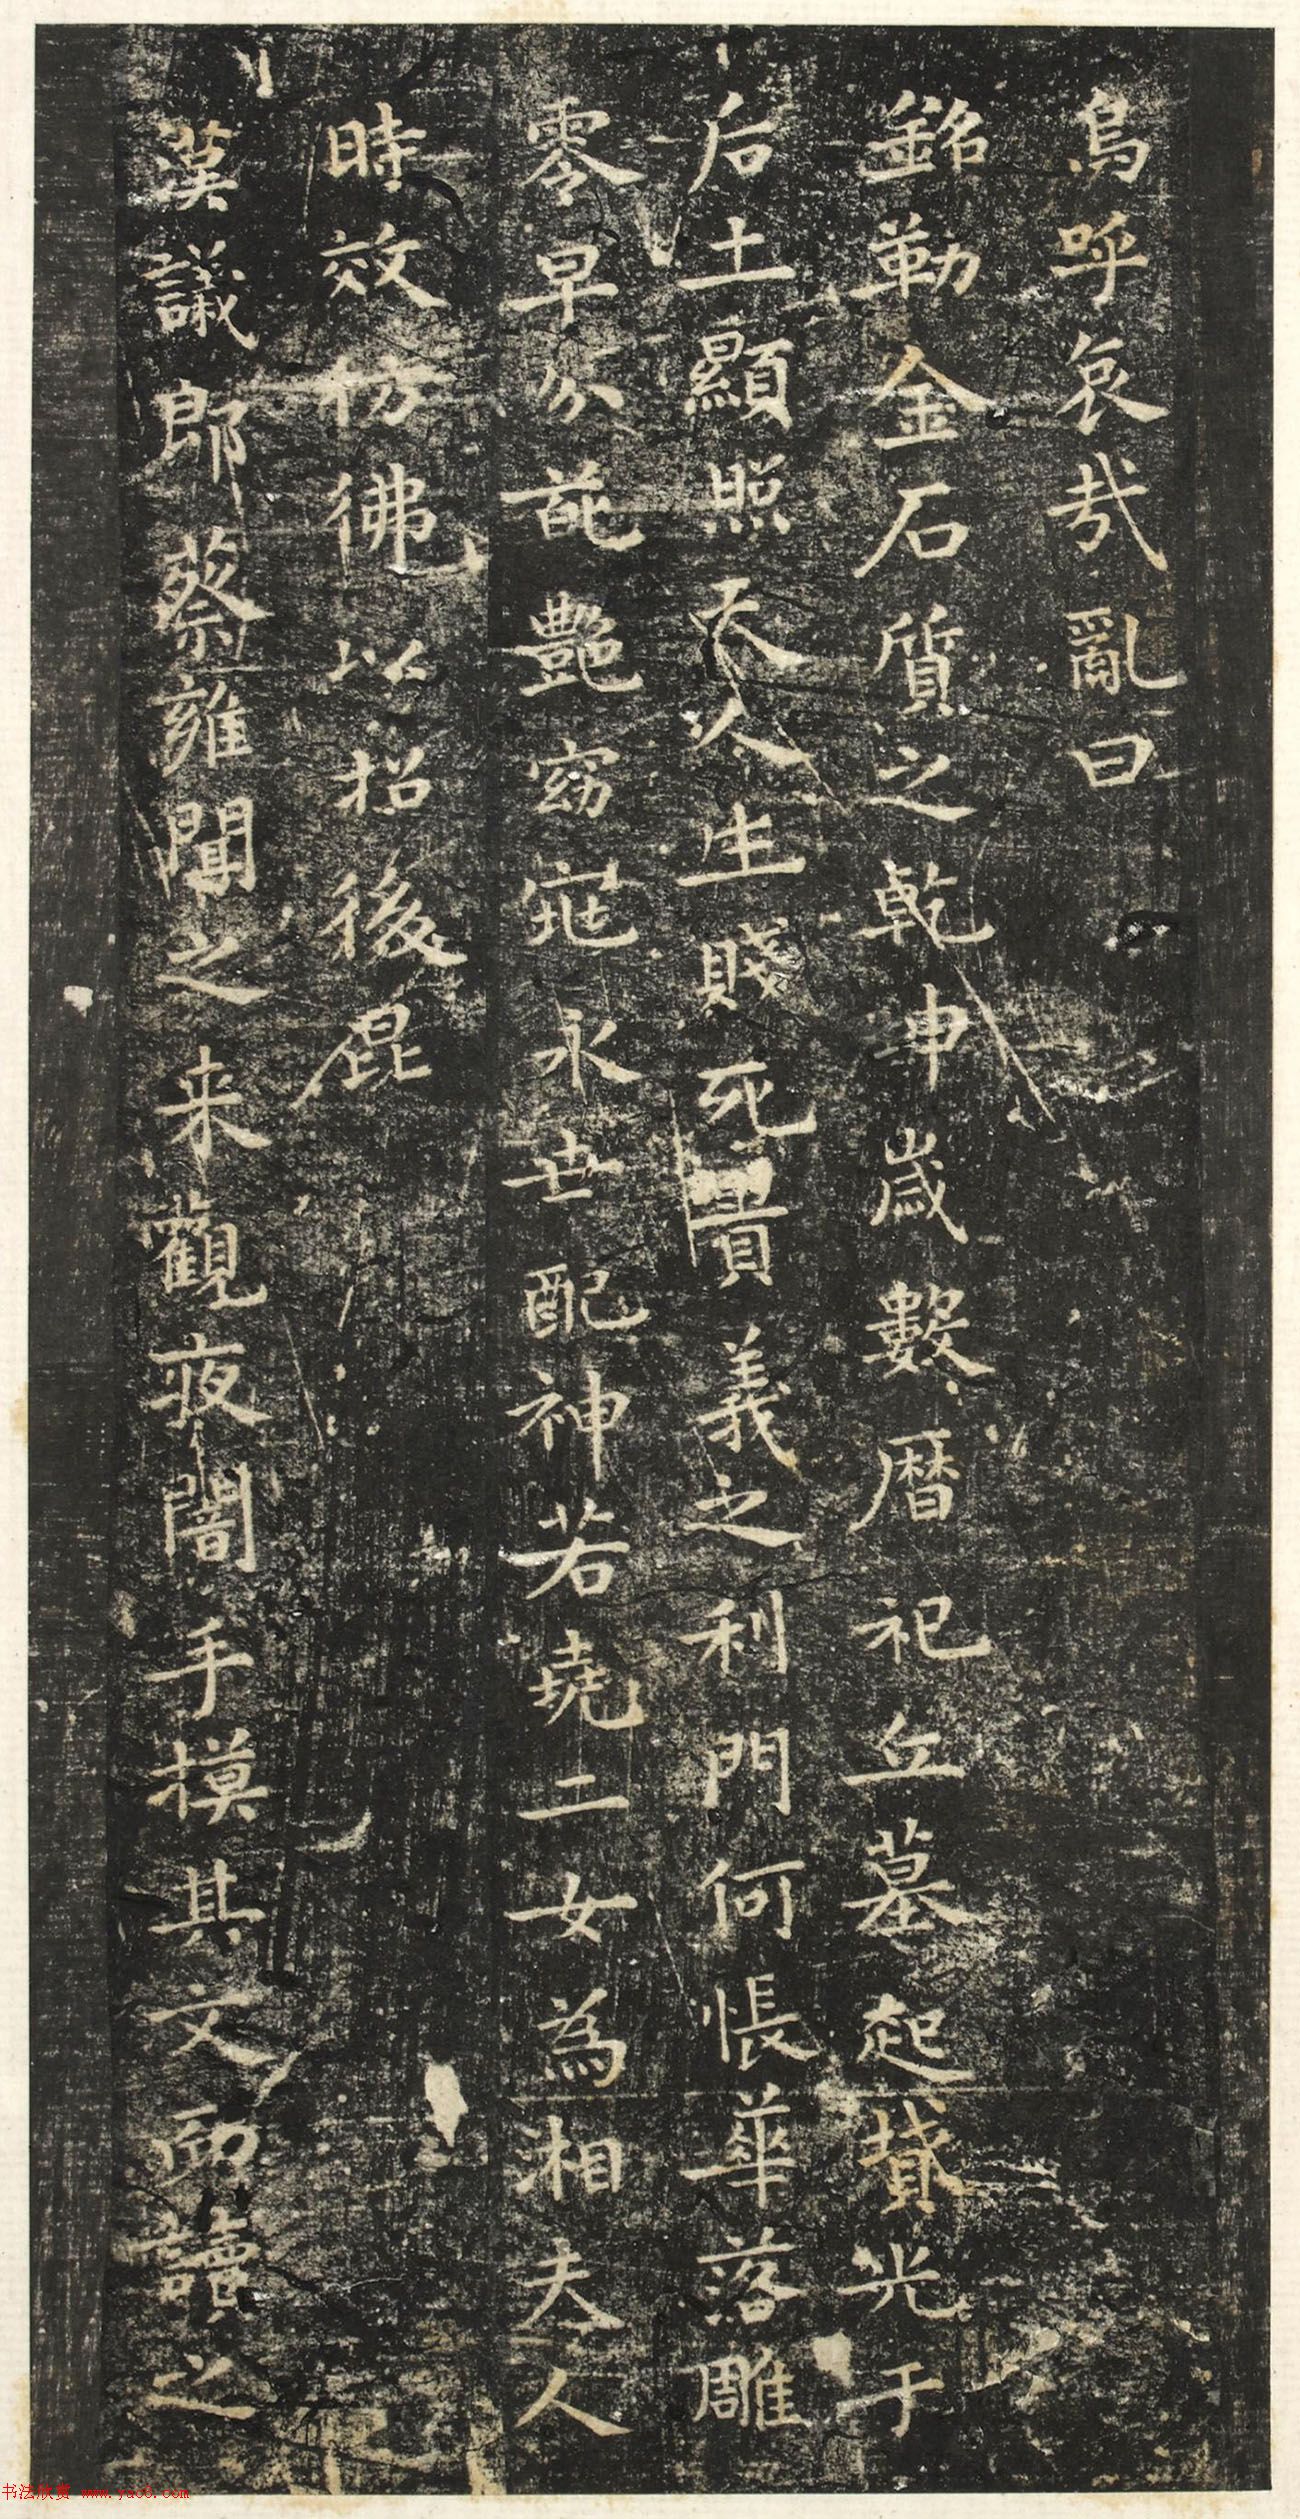 烏呼哀哉亂曰
銘勒金石質之乾申歲數曆祀丘墓起賁光于
后土顯照天人生賤死貴義之利門何悵華落雕
零早分葩艷窈窕永世配神若堯二女為湘夫人
時效彷彿以招後昆
漢議郎蔡雍聞之来觀夜闇手摸其文而讀之
书法欣赏 www.yac8.com